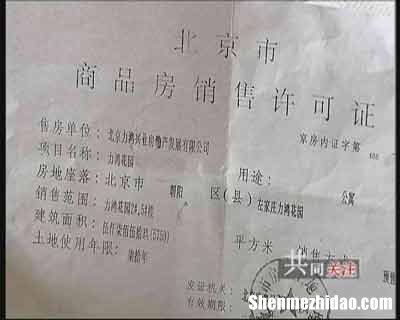 北京市
商品房销售许可证
京房内证字第 408
售房单位: 北京力鸿兴业房地产发展有限公司
项目名称: 力鸿花园
用途: 公寓
房地座落: 北京市 朝阳 区(县) 左家庄力鸿花园
销售范围: 力鸿花园2#,5#楼
建筑面积: 平方米 销售方式
土地使用年限: 柒拾年
预售
发证机关
有效期限
共同关注
Shenmezhidao.com